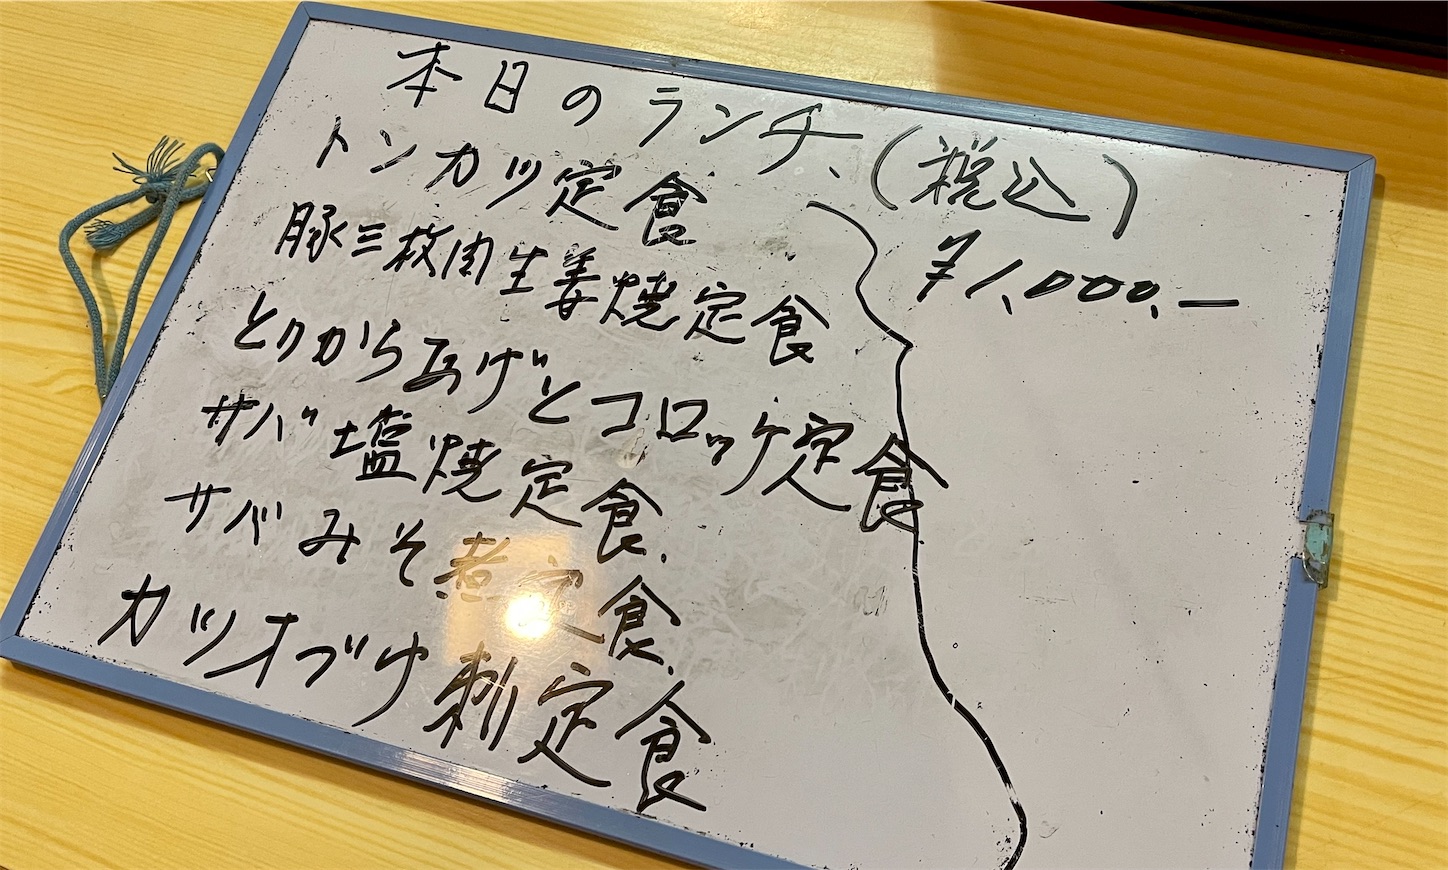 本日のランチ、(税込)
トンカツ定食
¥1,000.ー
豚三枚肉生姜焼定食
とりからあげとコロッケ定食
サバ塩焼定食.
サバみそ煮定食.
カツオブ刺定食